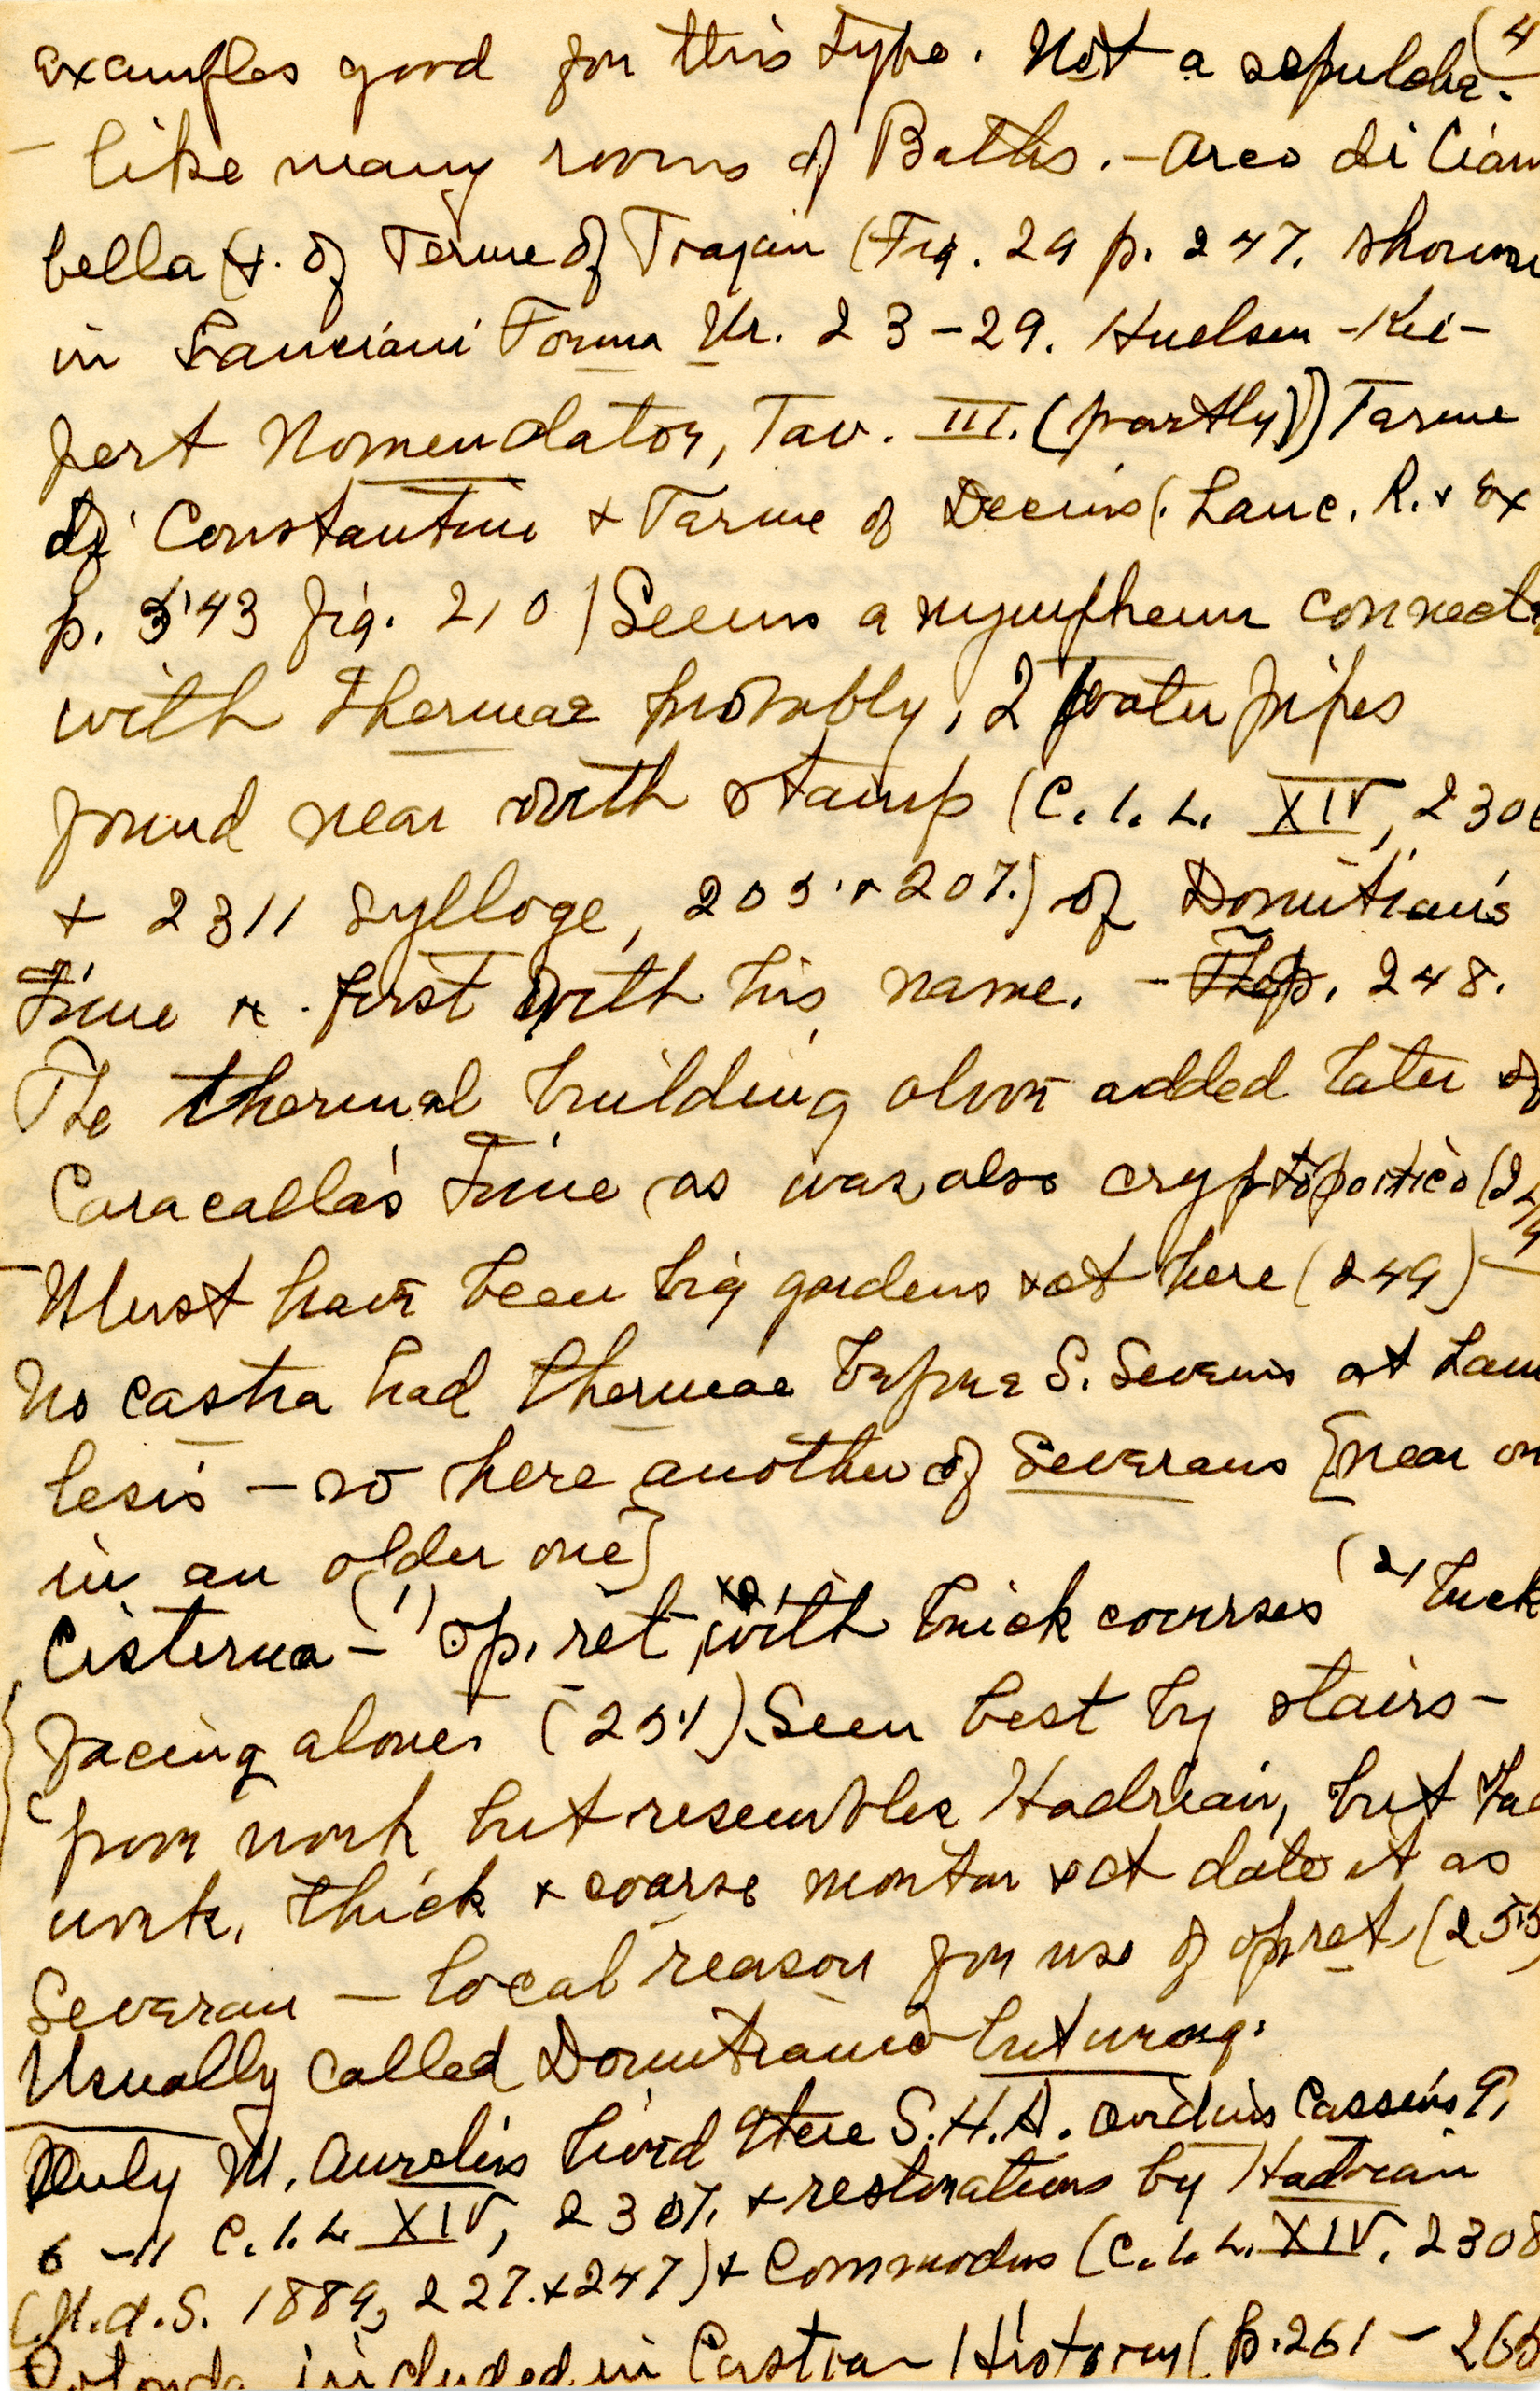 (4
examples good for this type. Not a sepulchre.
– like many rooms of Baths. – Arco di Ciam
bella (+. of Terme of Trajan (Fig. 29 p. 247. shown
in Lanciani Forma Ur. 23-29. Huelsen - Kie-
pert Nomenclator, Tav. III. (partly)) Terme
di Constantine + Terme of Decius (. Lanc. R. + Ex
p. 543 fig. 210) Seems a nympheum connect
with thermae probably, 2 water pipes
found near with stamp (C.I.L. XIV, 230
+ 2311 Sylloge, 205 + 207.) of Domitian's
time + first with his name. – p. 248.
The thermal building above added later of
Caracalla's time as was also cryptoportico (24
– Must have been big gardens +ct here (249) –
No castra had thermae before S. Severus at Lam
besis – so here another of Severans [near or
in an older one]
Cisterna – (1) op. ret. with brick courses (2) brick
facing alone. (251) Seen best by stairs –
poor work but resembles Hadrian, but bad
work, thick + coarse mortar +ct date it as
Severan – local reason for use of op ret (255
Usually called Domitiano but wrong.
Only M. Aurelius lived there S.H.A. Avidius Cassius 9,
6 – 11 C.I.L. XIV, 2307. + restorations by Hadrian
(N.d.S. 1889, 227. + 247) + Commodus (C.I.L. XIV. 2308
Rotonda included in Castra – History (p. 261 – 26